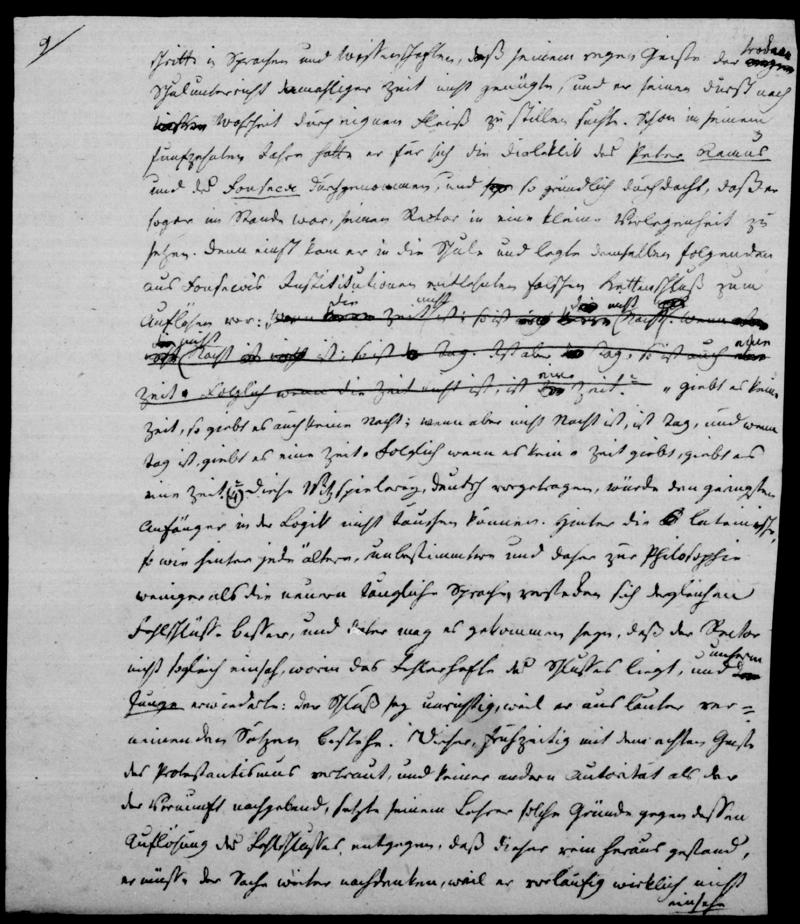 9/
schritte in Sprachen und Wissenschaften, daß seinem regen Geiste der trockene
Schulunterricht damahliger Zeit nicht genügte, und er seinen Durst nach
Wahrheit durch eignen Fleiß zu stillen suchte. Schon in seinem
funfzehnten Jahre hatte er für sich die Dialektik des Peter Ramus
und des Fonseca durchgenommen, und so gründlich durchdacht, daß er
sogar im Stande war, seinen Rector in eine kleine Verlegenheit zu
setzen. Denn einst kam er in die Schule und legte demselben folgenden
aus Fonseca's Instititutionen entlehnten falschen Kettenschluß zum
Auflösen vor: wenn die Zeit nicht ist; so ist die nicht Nacht. wenn aber
die nicht Nacht ist; so ist Tag. Ist aber Tag, so ist auch eine
Zeit. Folglich wenn die Zeit nicht ist, ist eine Zeit. " „ giebt es keine
Zeit, so giebt es auch keine Nacht; wenn aber nicht Nacht ist, ist Tag, und wenn
Tag ist, giebt es eine Zeit. Folglich wenn es keine Zeit giebt, giebt es
eine Zeit." (4) Diese Witzspielerey, deutsch vorgetragen, würde den geringsten
Anfänger in der Logik nicht täuschen können. Hinter die lateinische,
so wie hinter jede ältere, unbestimmtere und daher zur Philosophie
weniger als die neuern taugliche Sprache, verstecken sich dergleichen
Fehlschlüsse besser, und daher mag es gekommen seyn, daß der Rector
nicht sogleich einsah, worin das Fehlerhafte des Schlusses liegt, und unserm
Junge erwiederte: der Schluß sey unrichtig, weil er aus lauter ver=
neinenden Sätzen bestehe. Dieser, frühzeitig mit dem echten Geiste
des Protestantismus vertraut, und keiner andern Autorität als der
der Vernunft nachgebend, setzte seinem Lehrer solche Gründe gegen dessen
Auflösung des Fehlschlusses entgegen, daß dieser rein heraus gestand,
er müsse der Sache weiter nachdenken, weil er vorläufig wirklich nicht
einsehe